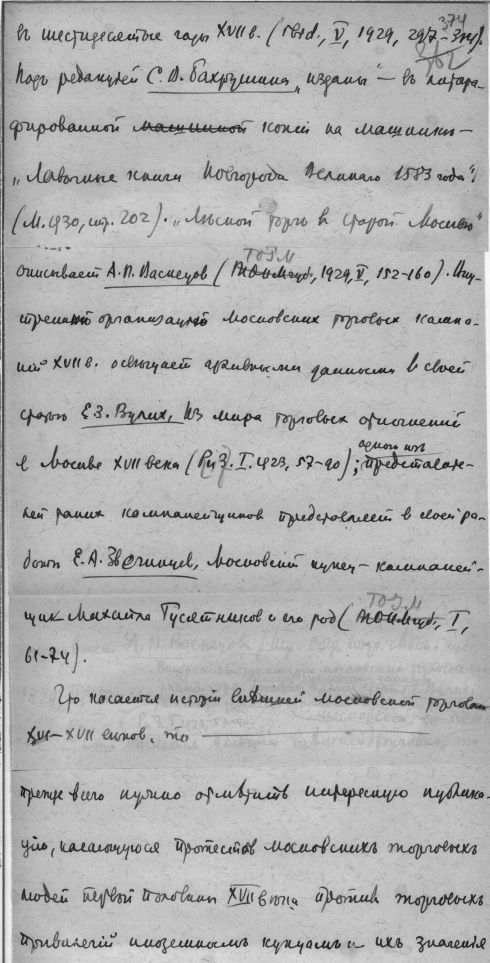 374
въ шестидесятые годы XVII в. (ibid., V, 1929, 297-374).
Подъ редакцiей С. В. Бахрушина „изданы" — въ литогра-
фированной машинной копiи на машинкѣ —
„Лавочные книги Новгорода Великаго 1583 года"
(М. 1930, стр. 202). „Лѣсной торгъ в старой Москвѣ"
ТОИМ
описывает А. М. Васнецов (1929, V, 152-160).
организацiю московских торговых кампа-
нiй XVII в. освѣщает архивными данными в своей
статьѣ Е. З. Вулих, Из мира торговых отношенiй
в Москвѣ XVII века (I. 1923, 57-90);
одного изъ
представите-
лей таких кампанейщиков представляет в своей ра-
ботѣ Е. А. Звягинцев, Московскiй купец-кампаней-
ТОИМ
щик Михаила Гусятников и его род (I,
61-74).
Что касается исторiи внѣшней московской торговли
XVI-XVII вѣков, то
прежде всего нужно отмѣтить интересную публика-
цiю, касающуюся протестов московскихъ торговыхъ
людей первой половины XVII вѣка против торговыхъ
привилегiй иноземнымъ купцамъ и ихъ значенiя